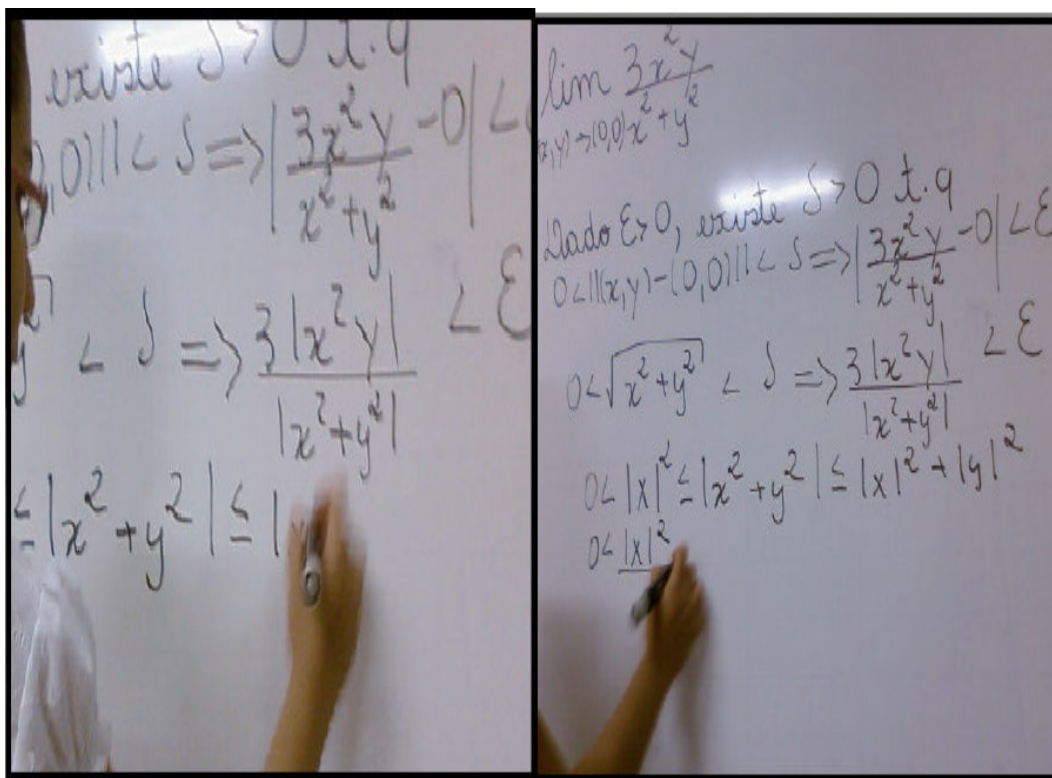 existe δ > 0 t.q
,0)|| < δ => |3x²y / x²+y² - 0| <
y² < δ => 3|x²y| / |x²+y²| < ε
≤ |x² + y²| ≤ |
lim 3x²y / x²+y²
(x,y)→(0,0)
Dado ε > 0, existe δ > 0 t.q
0 < ||(x,y) - (0,0)|| < δ => |3x²y / x²+y² - 0| < ε
0 < √x²+y² < δ => 3|x²y| / |x²+y²| < ε
0 < |x|² ≤ |x² + y²| ≤ |x|² + |y|²
0 < |x|²